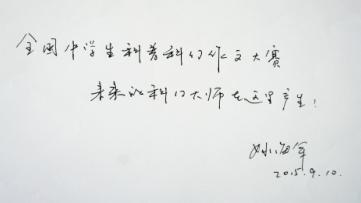 全国中学生科普科幻作文大赛
未来的科幻大师在这里产生!
姚海军
2015.9.10.